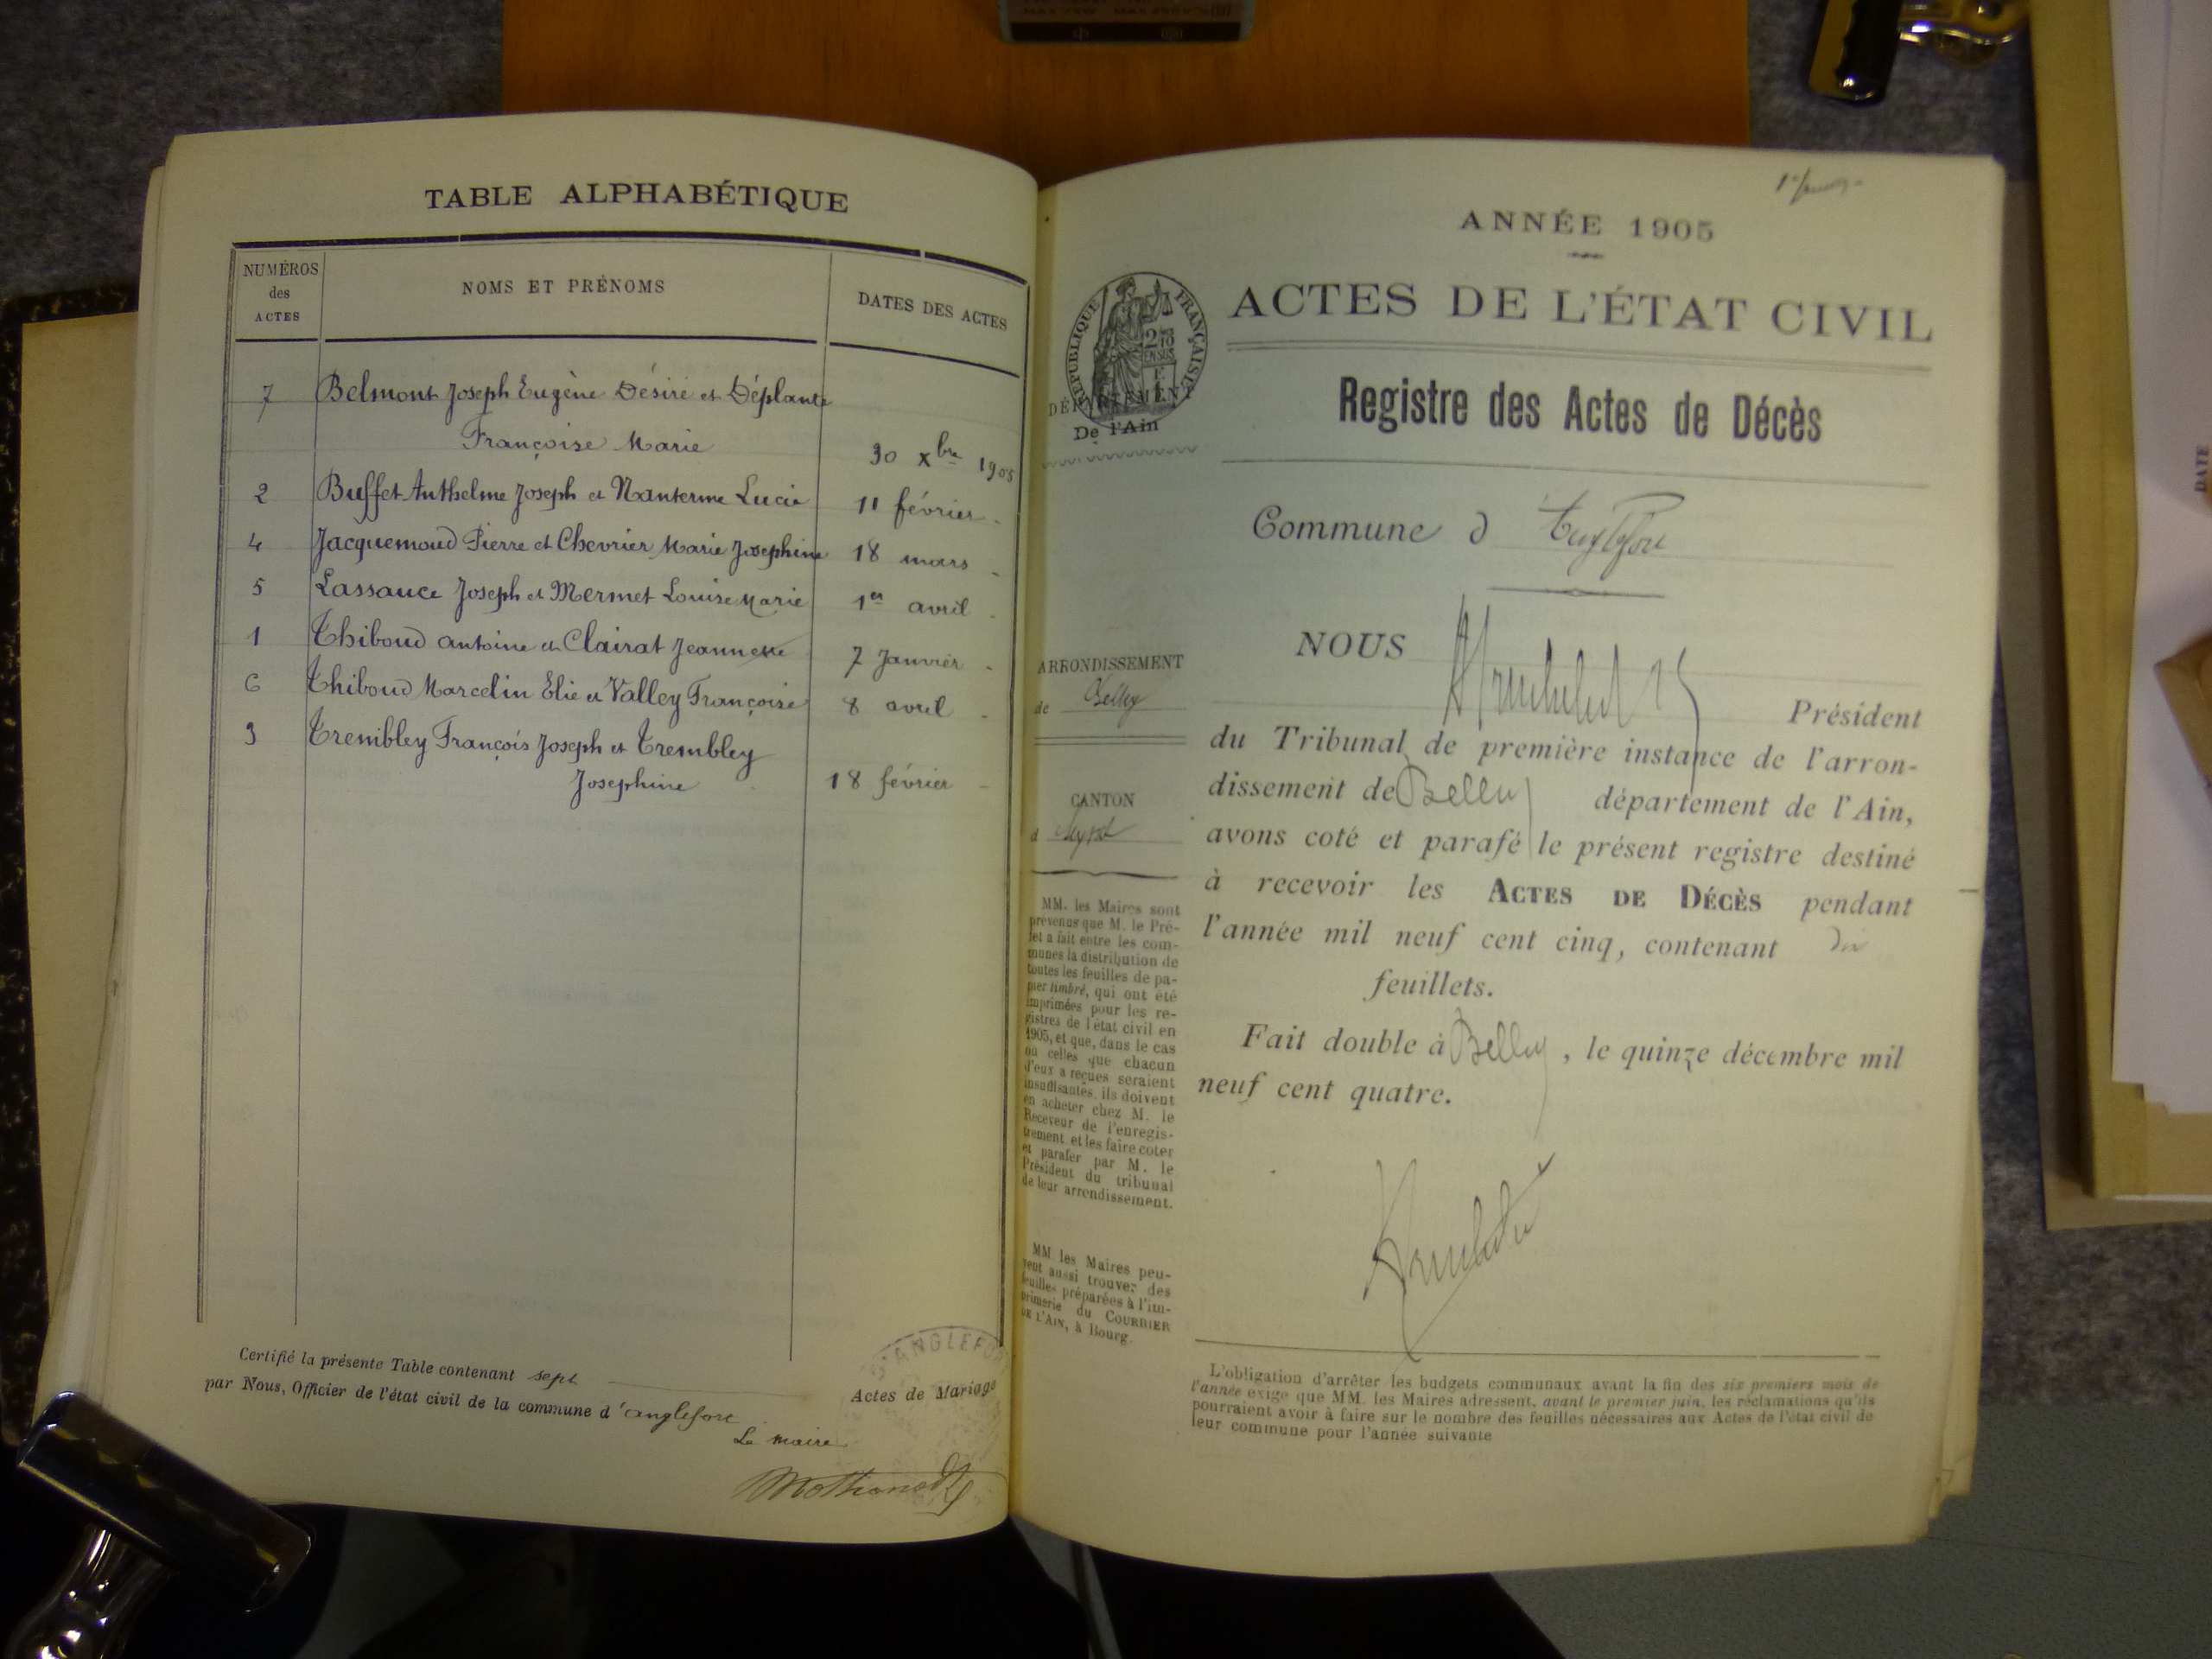 TABLE ALPHABÉTIQUE
NUMÉROS
des
ACTES
NOMS ET PRÉNOMS
DATES DES ACTES
7 Belmont Joseph Eugène Désiré et Déplante
Françoise Marie 30 Xbre 1905
2 Buffet Anthelme Joseph et Nanterme Lucie 11 février -
4 Jacquemoud Pierre et Chevrier Marie Josephine 18 mars -
5 Lassauce Joseph et Mermet Louise Marie 1er avril -
1 Thiboud antoine et Clairat Jeannette 7 Janvier -
6 Thiboud Marcelin Elie et Valley Françoise 8 avril -
3 Trembley François Joseph et Trembley
Josephine 18 février -
Certifié la présente Table contenant sept
Actes de Mariage
par Nous, Officier de l'état civil de la commune d'anglefort
Le maire
D'ANGLEFO
ANNÉE 1905
ACTES DE L'ÉTAT CIVIL
RÉPUBLIQUE FRANÇAISE
DÉPARTEMENT
De l'Ain
Registre des Actes de Décès
Commune d
NOUS
Président
du Tribunal de première instance de l'arron-
dissement de Belley département de l'Ain,
avons coté et parafé le présent registre destiné
à recevoir les ACTES DE DÉCÈS pendant
l'année mil neuf cent cinq, contenant dix
feuillets.
Fait double à Belley, le quinze décembre mil
neuf cent quatre.
ARRONDISSEMENT
de Belley
CANTON
d Seyssel
MM. les Maires sont
prévenus que M. le Pré-
fet a fait entre les com-
munes la distribution de
toutes les feuilles de pa-
pier timbré, qui ont été
imprimées pour les re-
gistres de l'état civil en
1905, et que, dans le cas
où celles que chacun
d'eux a reçues seraient
insuffisantes, ils doivent
en acheter chez M. le
Receveur de l'enregis-
trement et les faire coter
et parafer par M. le
Président du tribunal
de leur arrondissement.
MM les Maires peu-
vent aussi trouver des
feuilles préparées à l'im-
primerie du COURRIER
DE L'AIN, à Bourg.
L'obligation d'arrêter les budgets communaux avant la fin des six premiers mois de
l'année exige que MM. les Maires adressent, avant le premier juin, les réclamations qu'ils
pourraient avoir à faire sur le nombre des feuilles nécessaires aux Actes de l'état civil de
leur commune pour l'année suivante
DATE